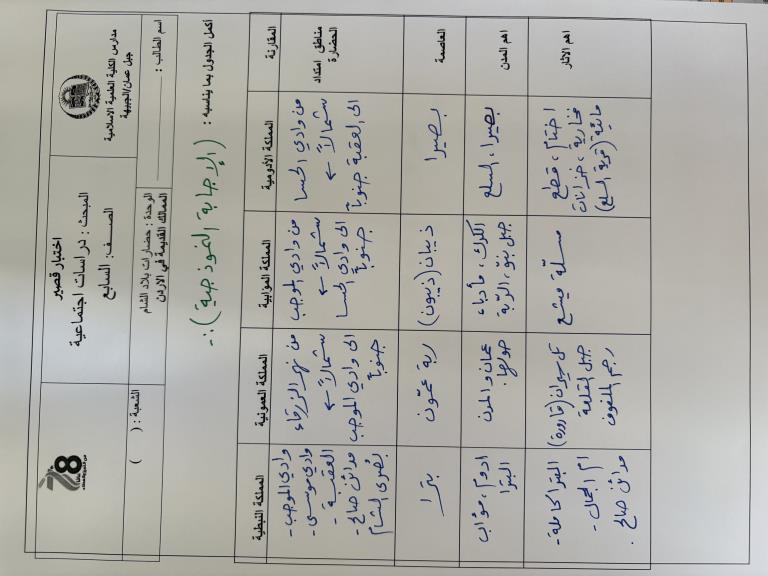 مدارس الكلية العلمية الاسلامية
جبل عمان/الجبيهة
اختبار قصير
المبحث : دراسات اجتماعية
الصف : السابع
78
اسم الطالب :
الوحدة : حضارات بلاد الشام
الممالك القديمة في الاردن
الشعبة : ( )
أكمل الجدول بما يناسبه :
(الإجابة النموذجية) :-
المقارنة
المملكة الأدومية
المملكة المؤابية
المملكة العمونية
المملكة النبطية
مناطق امتداد
الحضارة
من وادي الحسا
شمالاً ←
الى العقبة جنوباً
من وادي الموجب
شمالاً ←
الى وادي الحسا
جنوباً
من نهر الزرقاء
شمالاً ←
الى وادي الموجب
جنوباً
- وادي الموجب
- وادي موسى
- العقبة
- مدائن صالح
بُصرى الشام
العاصمة
بصيرا
ذيبان (ذيبون)
ربة عمّون
بترا
اهم المدن
بصيرا ، السلع
الكرك ، مأدبا ،
جبل نبو ، الربة
عمان والمدن
حولها .
ادوم ، مؤاب
البترا
اهم الآثار
اختام ، قطع
فخارية ، خزانات
مائية (قرية السلع)
مسلّة ميشع
تل سيران (قارورة)
جبل القلعة
رجم الملفوف
- البترا كاملة
- ام الجمال
مدائن صالح .